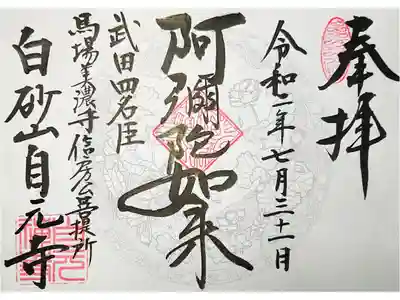 奉拝
令和二年七月三十一日
阿彌陀如来
武田四名臣
馬場美濃守信房公菩提所
白砂山自元寺